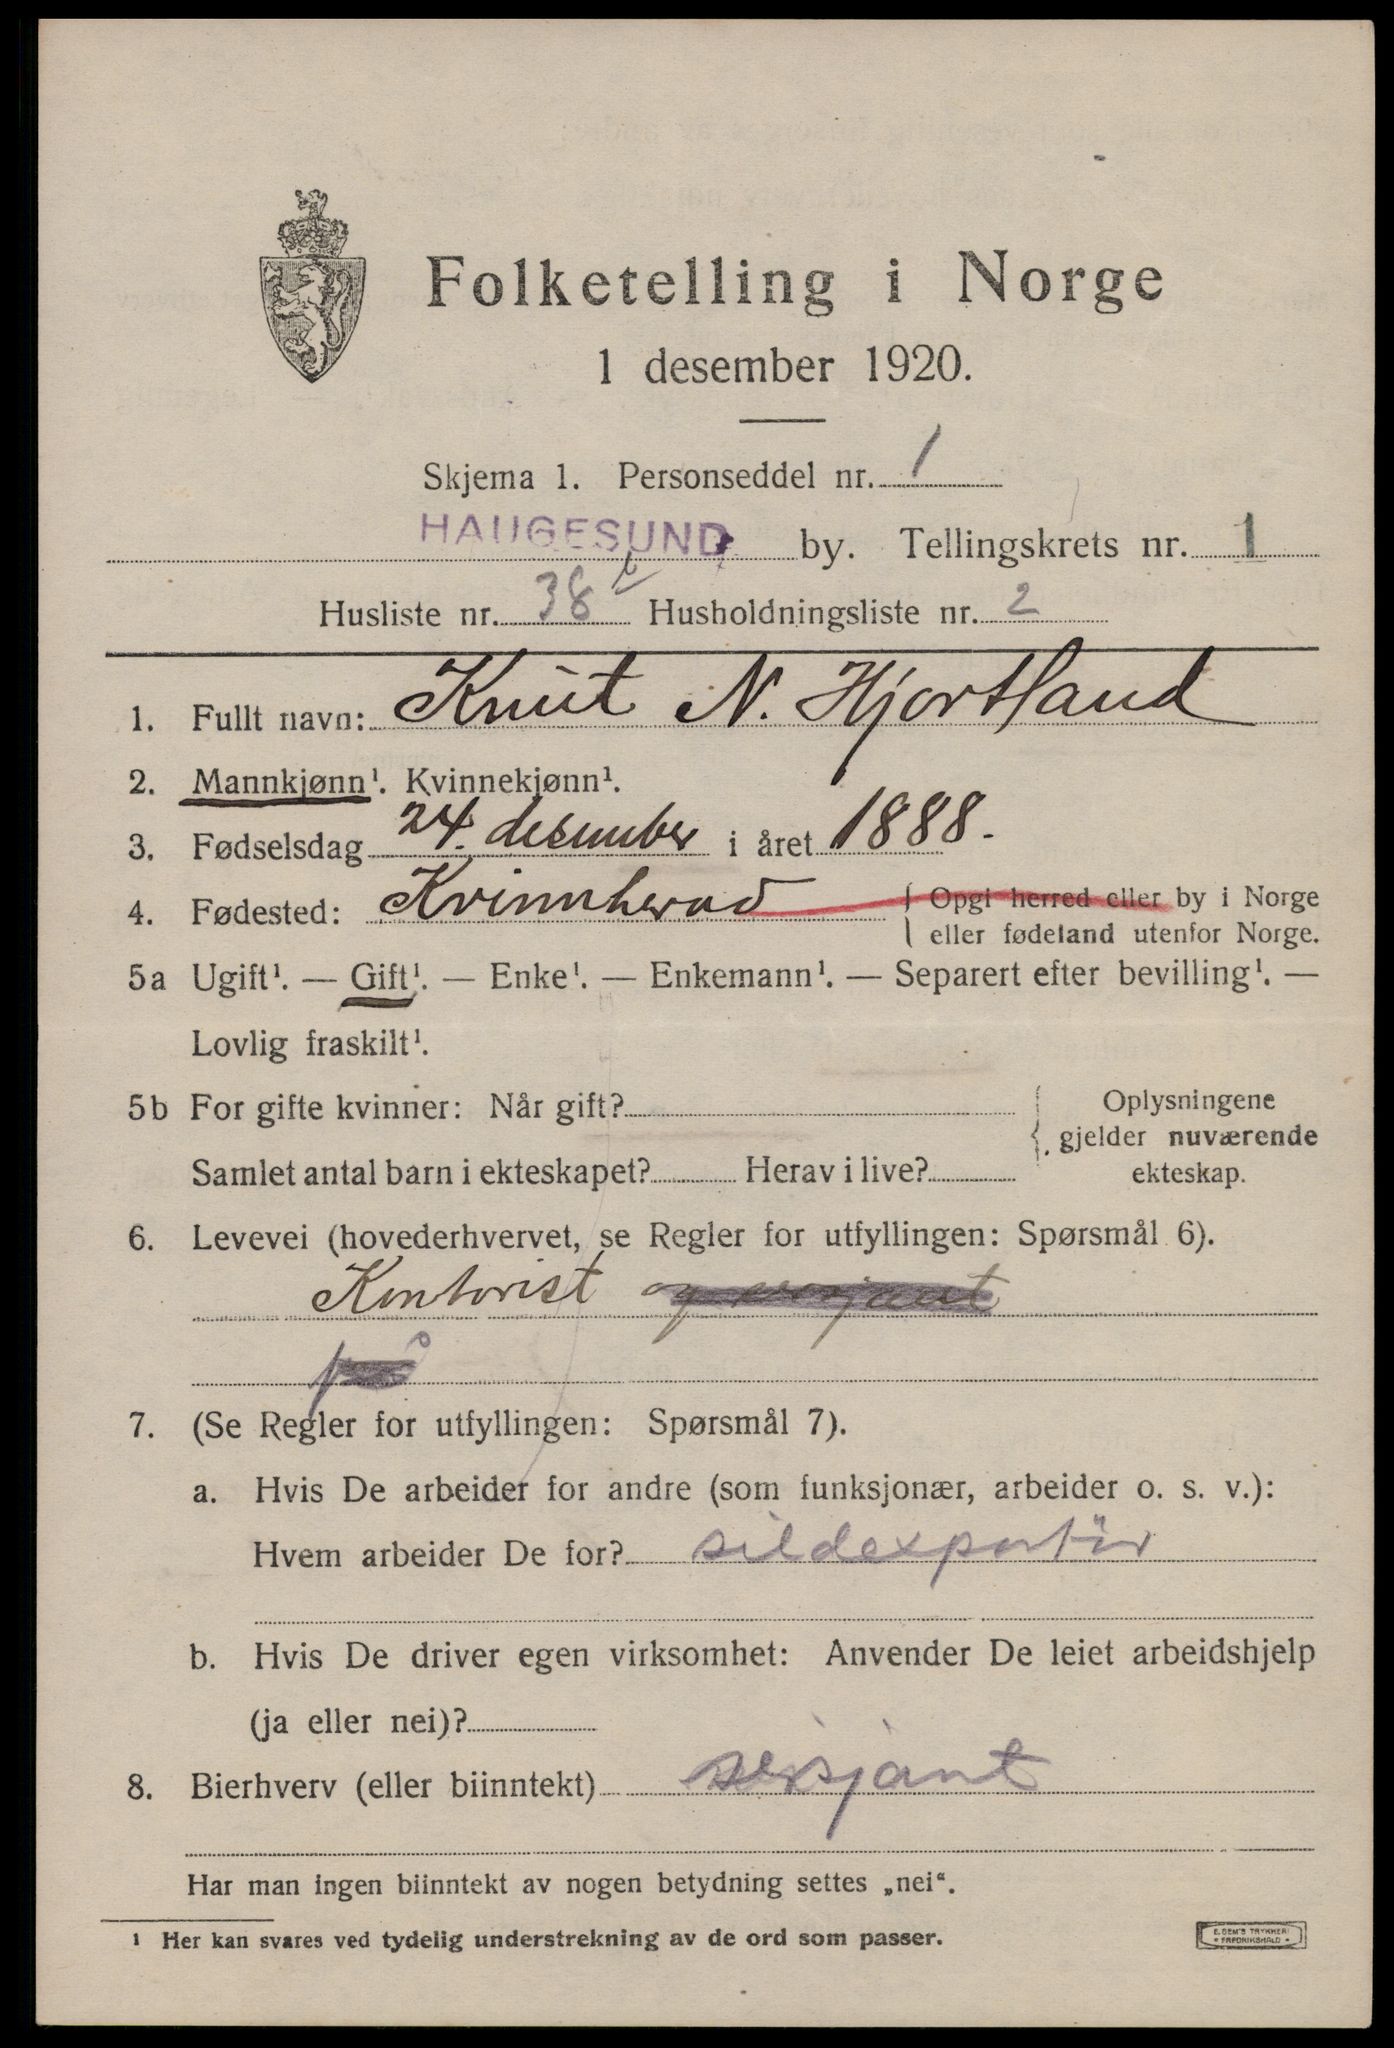 Folketelling i Norge
1 desember 1920.
Skjema 1. Personseddel nr. 1
HAUGESUND by. Tellingskrets nr. 1
Husliste nr. 38 b Husholdningsliste nr. 2
1. Fullt navn: Knut N. Hjortland
2. Mannkjønn¹. Kvinnekjønn¹.
3. Fødselsdag 24. desember i året 1888.
4. Fødested: Kvinnherad { Opgi herred eller by i Norge
eller fødeland utenfor Norge.
5a Ugift¹. — Gift¹. — Enke¹. — Enkemann¹. — Separert efter bevilling¹. —
Lovlig fraskilt¹.
5b For gifte kvinner: Når gift? { Oplysningene
gjelder nuværende
Samlet antal barn i ekteskapet? Herav i live? ekteskap.
6. Levevei (hovederhvervet, se Regler for utfyllingen: Spørsmål 6).
Kontorist og sersjant
på
7. (Se Regler for utfyllingen: Spørsmål 7).
a. Hvis De arbeider for andre (som funksjonær, arbeider o. s. v.):
Hvem arbeider De for? sildexportør
b. Hvis De driver egen virksomhet: Anvender De leiet arbeidshjelp
(ja eller nei)?
8. Bierhverv (eller biinntekt) sersjant
Har man ingen biinntekt av nogen betydning settes „nei“.
¹ Her kan svares ved tydelig understrekning av de ord som passer.
E. SEM'S TRYKKERI
• FREDRIKSHALD •